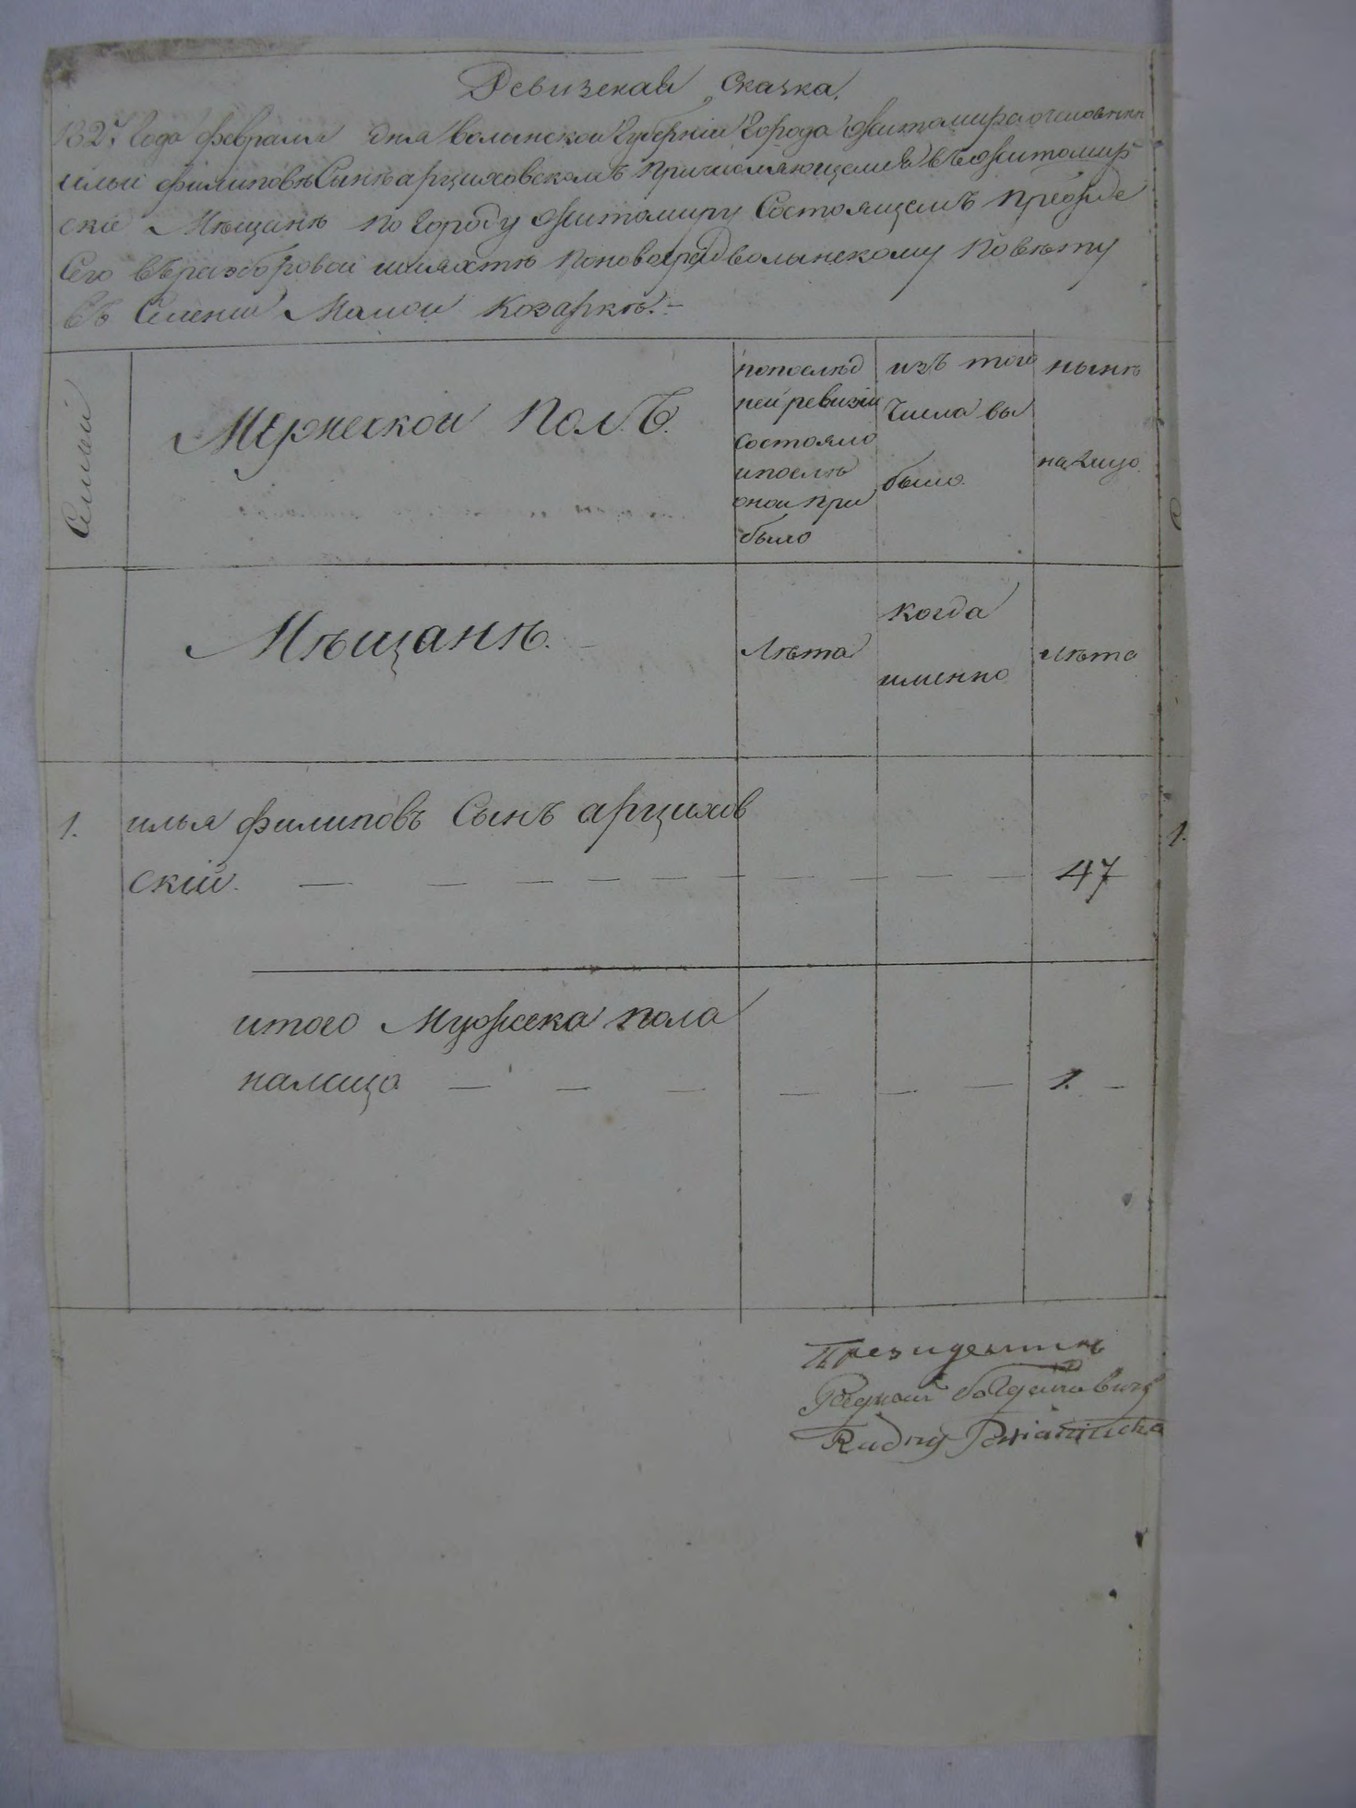 Ревизская Сказка.
1827 Года февраля дня волынской Губерніи Города Житомира о
ильи филиповѣ Сынѣ арциховскомъ причисляющемся въ Житомир
скіе Мѣщанѣ по городу Житомиру Состоящемъ прежде
Сего въ разборовой шляхтѣ по новоградволынскому повѣту
въ Селеніи Малой Козаркѣ. –
Семьи
Мужескои Полъ.
попослѣд
ней ревизіи
Состояло
и послѣ
оной при
было
изъ того
Числа вы
было.
нынѣ
на Лицо.
Мѣщанѣ.
Лѣта
когда
именно
лѣта
1. илья филиповъ Сынъ арцихов
скій. — — — — — — — — — — 47
1.
итого Мужеска пола
налицо — — — — — — 1. –
Президентъ
Rudny